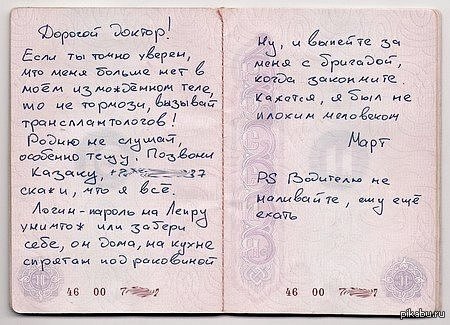 Дорогой доктор!
Если ты точно уверен,
что меня больше нет в
моём измождённом теле,
то не тормози, вызывай
трансплантологов!
Родню не слушай,
особенно тещу. Позвони
Казаку, 37
скажи, что я всё.
Логин-пароль на Лепру
уничтож или забери
себе, он дома, на кухне
спрятан под раковиной
46 00 7
Ну, и выпейте за
меня с бригадой,
когда закончите.
Кажется, я был не
плохим человеком
Март
PS Водителю не
наливайте, ему ещё
ехать
46 00 7
pikabu.ru